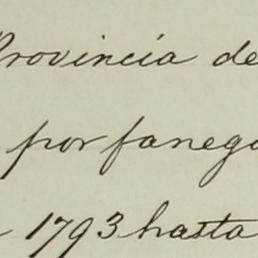 Provincia de
por fanega
1793 hasta